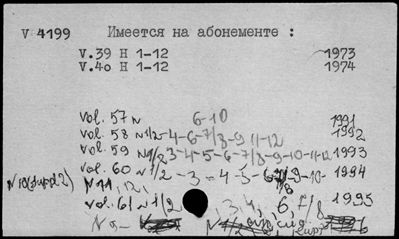 V 4199 Имеется на абонементе :
V.39 Н 1-12 1973
V.40 Н 1-12 1974
Vol. 57 N 6-10 1991
Vol. 58 N1/2-4-6-7/8-9 11-12 1992
Vol. 59 N1/2 3-4-5-6-7/8-9-10-11-12 1993
Vol. 60 N 1/2 - 3 - 4-5-6 7/8 9-10- 1994
N 10(suppl 2) N 11, 12,
Vol. 61 N 1/2, 3, 4, 6, 7/8 1995